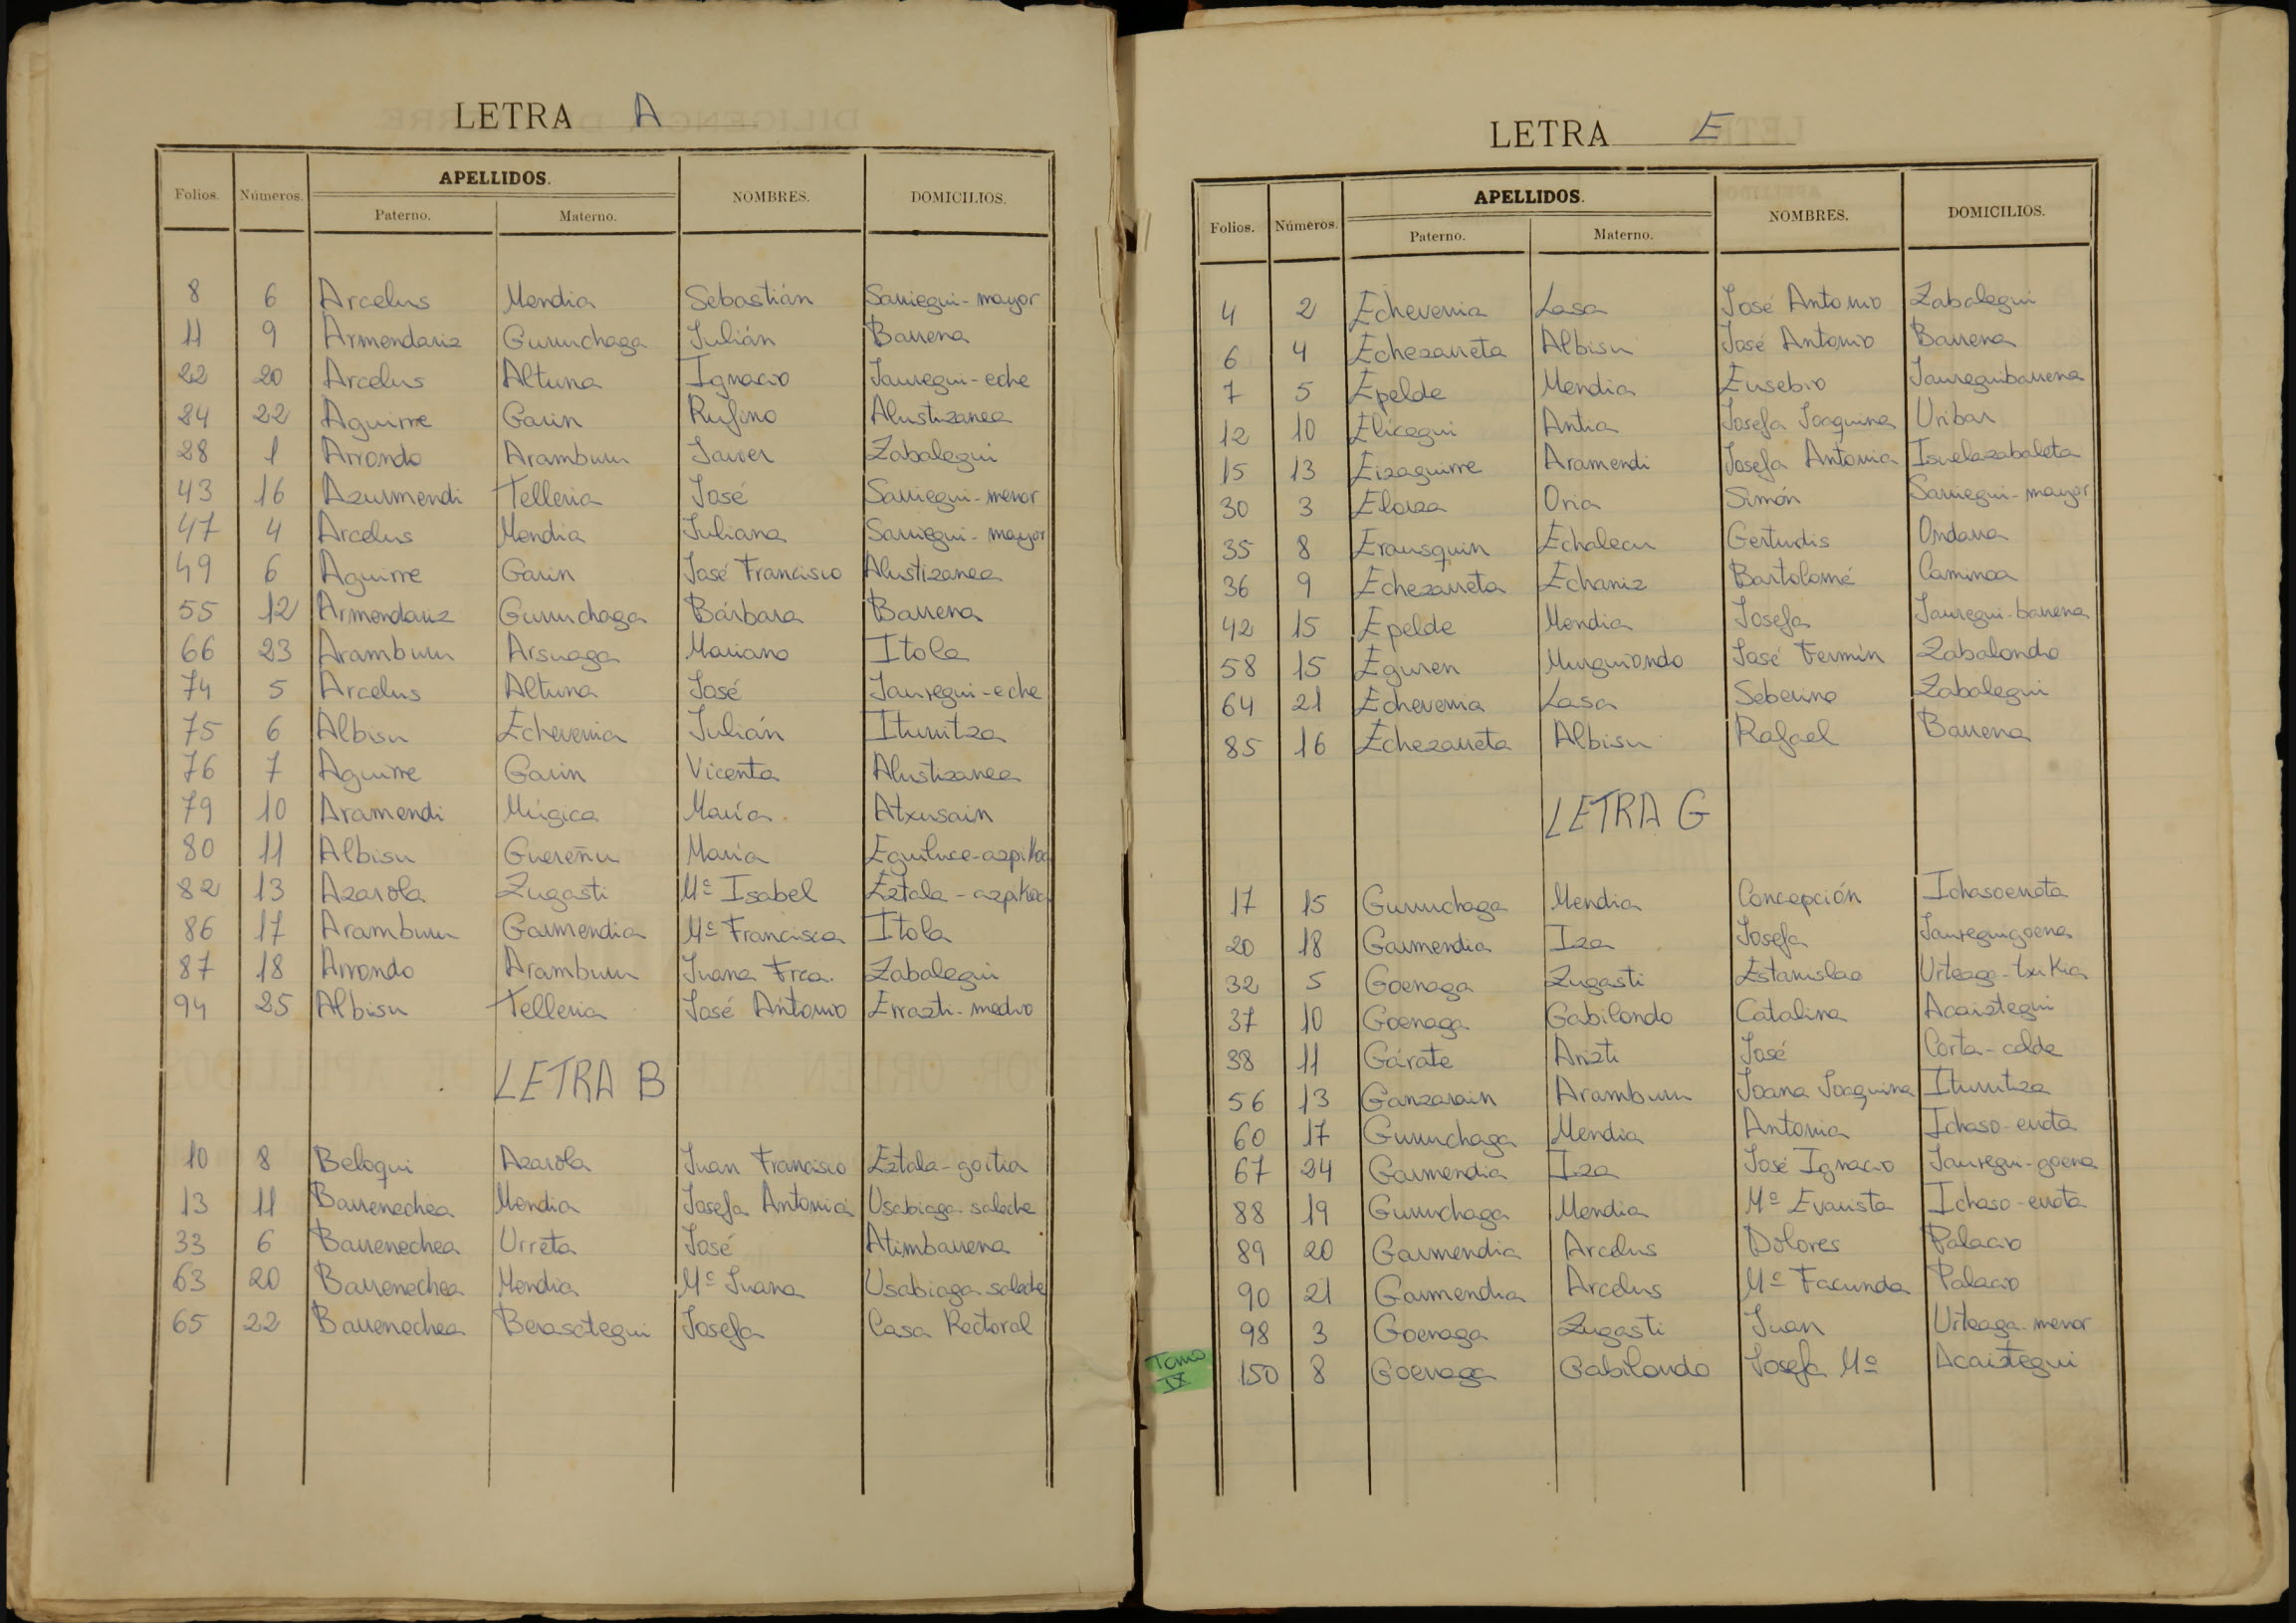 LETRA A
Folios. Números. APELLIDOS. NOMBRES. DOMICILIOS.
Paterno. Materno.
8 6 Arcelus Mendia Sebastián Sarriegui-mayor
11 9 Armendariz Guruchaga Julián Barrena
22 20 Arcelus Altuna Ignacio Jauregui-eche
24 22 Aguirre Garin Rufino Alustizanea
28 1 Arrondo Aramburu Javier Zabalegui
43 16 Azurmendi Telleria José Sarriegui-menor
47 4 Arcelus Mendia Juliana Sarriegui-mayor
49 6 Aguirre Garin José Francisco Alustizanea
55 12 Armendariz Guruchaga Bárbara Barrena
66 23 Aramburu Arsuaga Mariano Itola
74 5 Arcelus Altuna José Jauregui-eche
75 6 Albisu Echeverria Julián Iturritza
76 7 Aguirre Garin Vicenta Alustizanea
79 10 Aramendi Múgica María Atxusain
80 11 Albisu Guereñu María Eguiluce-azpikoa
82 13 Azarola Zugasti Mª Isabel Eztala-azpikoa
86 17 Aramburu Garmendia Mª Francisca Itola
87 18 Arrondo Aramburu Juana Frca. Zabalegui
94 25 Albisu Telleria José Antonio Errazti-medio
LETRA B
10 8 Beloqui Azarola Juan Francisco Eztala-goitia
13 11 Barrenechea Mendia Josefa Antonia Usabiaga-saleche
33 6 Barrenechea Urreta José Atimbarrena
63 20 Barrenechea Mendia Mª Juana Usabiaga saleche
65 22 Barrenechea Berasategui Josefa Casa Rectoral
LETRA E
Folios. Números. APELLIDOS. NOMBRES. DOMICILIOS.
Paterno. Materno.
4 2 Echeverria Lasa José Antonio Zabalegui
6 4 Echezarreta Albisu José Antonio Barrena
7 5 Epelde Mendia Eusebio Jaureguibarrena
12 10 Elicegui Antia Josefa Joaquina Uribar
15 13 Eizaguirre Aramendi Josefa Antonia Isuelazabaleta
30 3 Eloiza Oria Simón Sarriegui-mayor
35 8 Erausquin Echalecu Gertudis Ondarra
36 9 Echezarreta Echaniz Bartolomé Caminoa
42 15 Epelde Mendia Josefa Jauregui-barrena
58 15 Eguren Murguiondo José Fermín Zabalondo
64 21 Echeverria Lasa Seberino Zabalegui
85 16 Echezarreta Albisu Rafael Barrena
LETRA G
17 15 Guruchaga Mendia Concepción Ichasoerrota
20 18 Garmendia Iza Josefa Jaureguigoena
32 5 Goenaga Zugasti Estanislao Urteaga-txikia
37 10 Goenaga Gabilondo Catalina Acaiztegui
38 11 Gárate Arizti José Corta-calde
56 13 Ganzarain Aramburu Joana Joaquina Iturritza
60 17 Guruchaga Mendia Antonia Ichaso-errota
67 24 Garmendia Iza José Ignacio Jauregui-goena
88 19 Guruchaga Mendia Mª Evarista Ichaso-errota
89 20 Garmendia Arcelus Dolores Palacio
90 21 Garmendia Arcelus Mª Facunda Palacio
98 3 Goenaga Zugasti Juan Urteaga-menor
Tomo IX 150 8 Goenaga Gabilondo Josefa Mª Acaiztegui